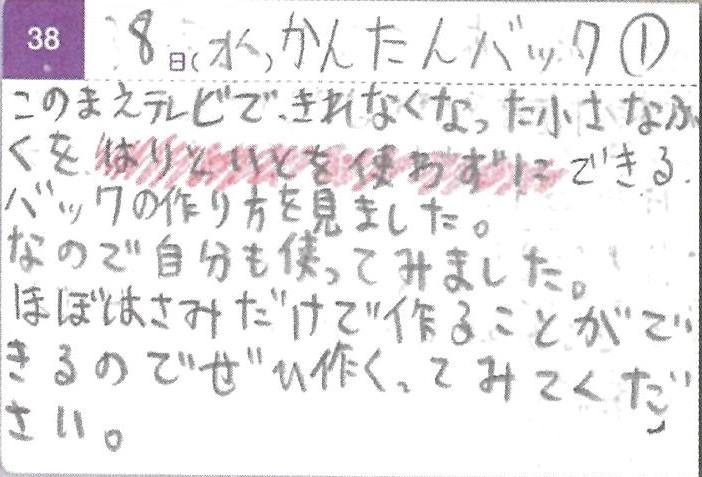 38 8日(水)かんたんバック①
このまえテレビで、きれなくなった小さなふ
くを、はりといとを使わずにできる
バックの作り方を見ました。
なので自分も使ってみました。
ほぼはさみだけで作ることがで
きるのでぜひ作くってみてくだ
さい。